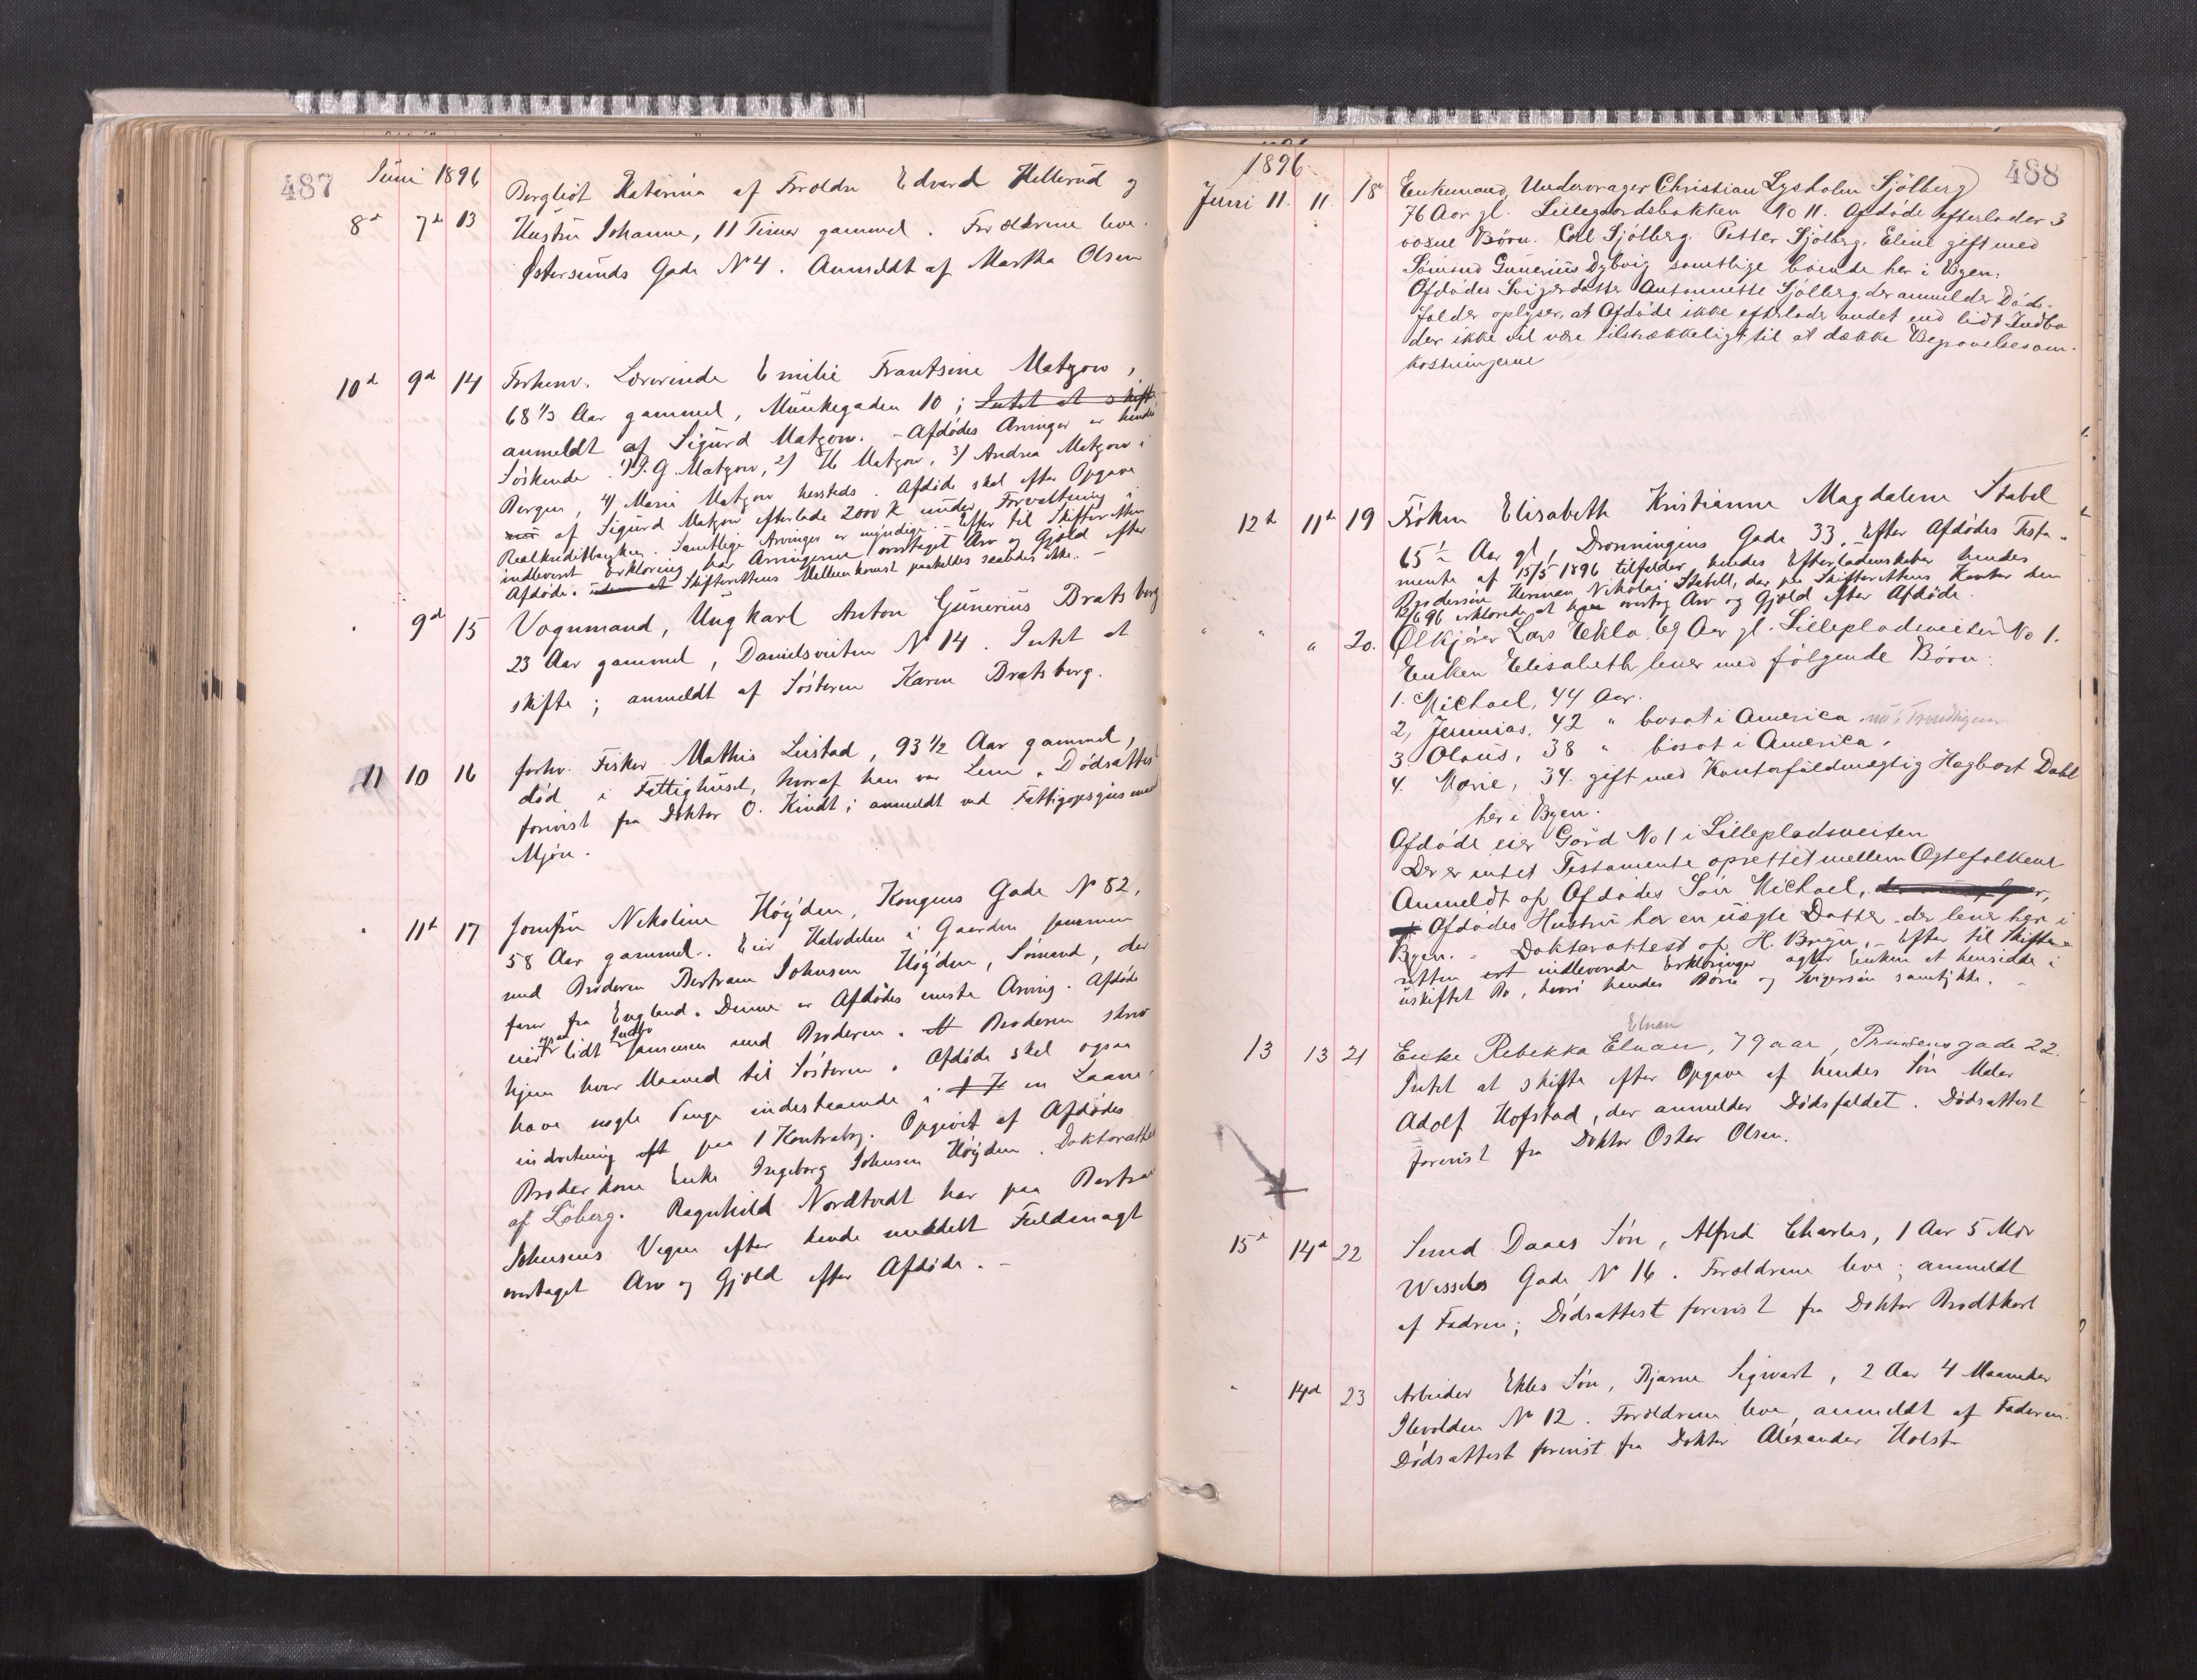 487
Juni 1896
Bergliot Katarina af Forældre Edvard Hellerud og
8d 7de 13 Hustru Johanne, 11 Timer gammel. Forældrene leve.
Østersunds Gade No 4. Anmeldt af Martha Olsen
10d 9d 14 Forhenv. Lærerinde Emilie Frantsine Matzow,
68 1/3 Aar gammel, Munkegaden 10; Intet at skifte
anmeldt af Sigurd Matzow. - Afdødes Arvinger er hendes
Söskende 1) J. G. Matzow, 2) H Matzow, 3) Andrea Matzow i
Bergen, 4) Marie Matzow hersteds. Afdøde skal efter Opgave
af Sigurd Matzow efterlade 2000 K under Forvaltning i
Realkreditbanken. Samtlige Arvinger er myndige. - Efter til Skifteretten
indleveret Erklæring har Arvingerne overtaget Arv og Gjæld efter
Afdøde. uden at Skifterettens Mellemkomst paakaldes saaledes ikke. -
9d 15 Vognmand, Ungkarl Anton Gunerius Bratsberg
23 Aar gammel, Danielsveiten No 14. Intet at
skifte; anmeldt af Søsteren Karen Bratsberg.
11 10 16 forhv. Fisker Mathis Leistad, 93 1/2 Aar gammel,
död i Fattighuset, hvoraf han var Lem. Dødsattest
forevist fra Doktor O. Kindt; anmeldt ved Fattigopsynsmand
Mjøn.
11te 17 Jomfru Nekoline Höyden, Kongens Gade No 82,
58 Aar gammel. Eier Halvdelen i Gaarden sammen
med Broderen Bertram Johnsen Höyden, Sømand, der
farer fra England. Denne er Afdødes eneste Arving. Afdøde
eier lidt Indbo sammen med Broderen. Broderen skrev
hjem hver Maaned til Søsteren. Afdøde skal ogsaa
have nogle Penge indestaaende i en Laane-
indretning paa 1 Kontrabog. Opgivet af Afdødes
Broderkone Enke Ingeborg Johnsen Höyden. Doktorattest
af Löberg. Ragnhild Nordtvedt har paa Bertram
Johnsens Vegne efter hende meddelt Fuldmagt
overtaget Arv og Gjæld efter Afdøde. -
488
1896
Juni 11. 11. 18 Enkemand, Undervrager Christian Lysholm Sjölberg
76 Aar gl. Lillegaardsbakken No 11. Afdöde efterlader 3
voxne Börn. Carl Sjölberg, Petter Sjölberg, Eline gift med
Sömand Gunerius Dybvig samtlige boende her i Byen.
Afdödes Svigerdatter Antonette Sjölberg, der anmelder Döds-
faldet oplyser, at Afdöde ikke efterlader andet end lidt Indbo
der ikke vil være tilstrækkeligt til at dække Begravelsesom-
kostningerne
12te 11te 19 Fröken Elisabeth Kristianne Magdalene Stabel
65 1/2 Aar gl, Dronningens Gade 33. - Efter Afdødes Testa-
mente af 15/5 1896 tilfalder hendes Efterladenskaber hendes
Brodersøn Herman Nikolai Stabell, der paa Skifterettens Kontor den
12/6 96 erklærede at han overtog Arv og Gjæld efter Afdøde.
" " " 20. Ölkjörer Lars Ekle 69 Aar gl. Lillepladsveiten No 1.
Enken Elisabeth lever med fölgende Börn:
1. Michael, 44 Aar.
2, Jeremias, 42 " bosat i America nu i Trondhjem
3 Olaus, 38 " bosat i America.
4. Marie, 34. gift med Kontorfuldmægtig Hagbart Dahl
her i Byen.
Afdöde eier Gård No 1 i Lillepladsveiten
Der er intet Testamente oprettet mellem Ægtefolkene
Anmeldt af Afdödes Sön Michael,
Afdödes Hustru har en uægte Datter, der lever her i
Byen. - Doktorattest af H. Bryn. - Efter til Skifte-
retten indleverede Erklæringer agter Enken at hensidde i
uskiftet Bo, hvori hendes Børn og Svigersøn samtykke. -
Elnan
13 13 21 Enke Rebekka Elnan, 79 aar, Prinsensgade 22.
Intet at skifte efter Opgave af hendes Sön Maler
Adolf Hofstad, der anmelder Dødsfaldet. Dødsattest
forevist fra Doktor Oskar Olsen.
15d 14d 22 Smed Daaes Sön, Alfred Charles, 1 Aar 5 Mdr
Wessels Gade No 16. Forældrene leve; anmeldt
af Fadren; Dødsattest forevist fra Doktor Brodtkorb
" 14d 23 Arbeider Ekles Sön, Bjarne Sigvart, 2 Aar 4 Maaneder
Ilevolden No 12. Forældrene leve, anmeldt af Faderen.
Dødsattest forevist fra Doktor Alexander Holst